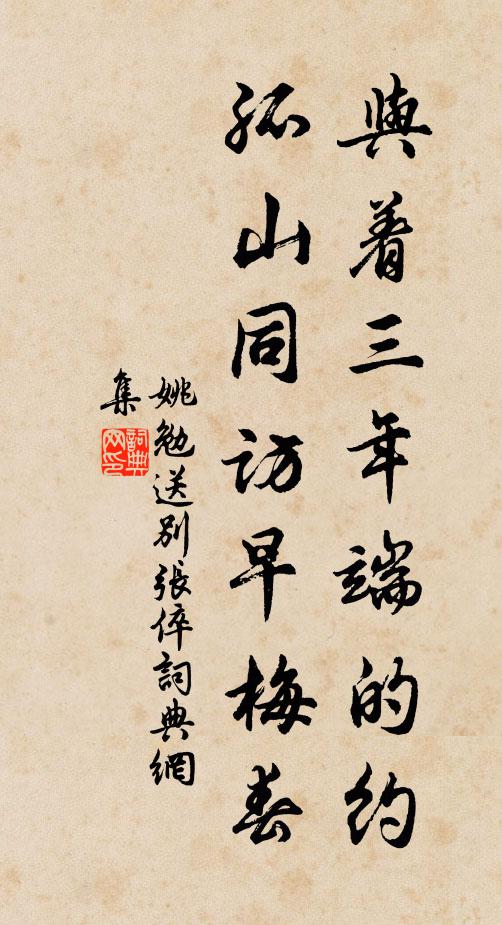 與着三年端的約
孤山同訪早梅春
姚勉送別張倅詞典網
集
詞典
网印